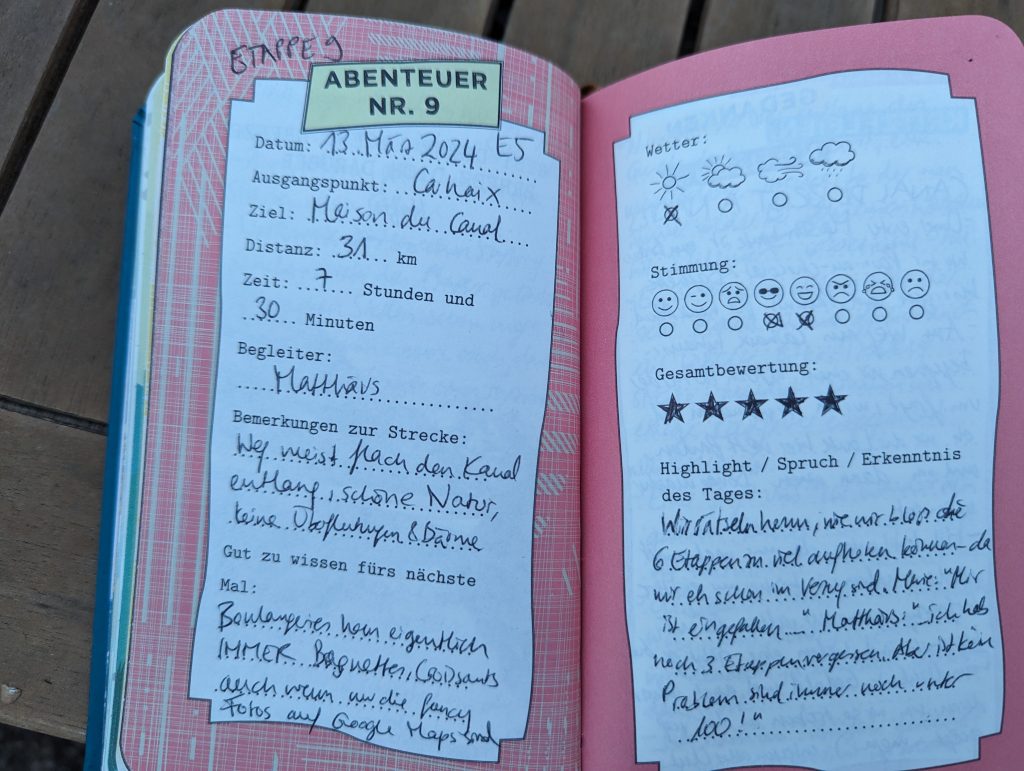 ETAPPE 9
ABENTEUER
NR. 9
Datum: 13. März 2024 E5
Ausgangspunkt: Carhaix
Ziel: Maison du Canal
Distanz: 31 km
Zeit: 7 Stunden und
30 Minuten
Begleiter:
Matthäus
Bemerkungen zur Strecke:
Weg meist flach den Kanal
entlang, schöne Natur,
keine Überflutungen & Bäume
Gut zu wissen fürs nächste
Mal:
Boulangeries ham eigentlich
IMMER Baguettes, Croissants
auch wenn nur die fancy
Fotos auf Google Maps sind
Wetter:
Stimmung:
Gesamtbewertung:
Highlight / Spruch / Erkenntnis
des Tages:
Wir rätseln herum, wie wir bloß die
6 Etappen zu viel aufholen können – da
wir eh schon im Verzug sind. Marie: "Mir
ist eingefallen ..." Matthäus: "ich hab
noch 3 Etappen vergessen. Aber ist kein
Problem sind immer noch unter
100!"